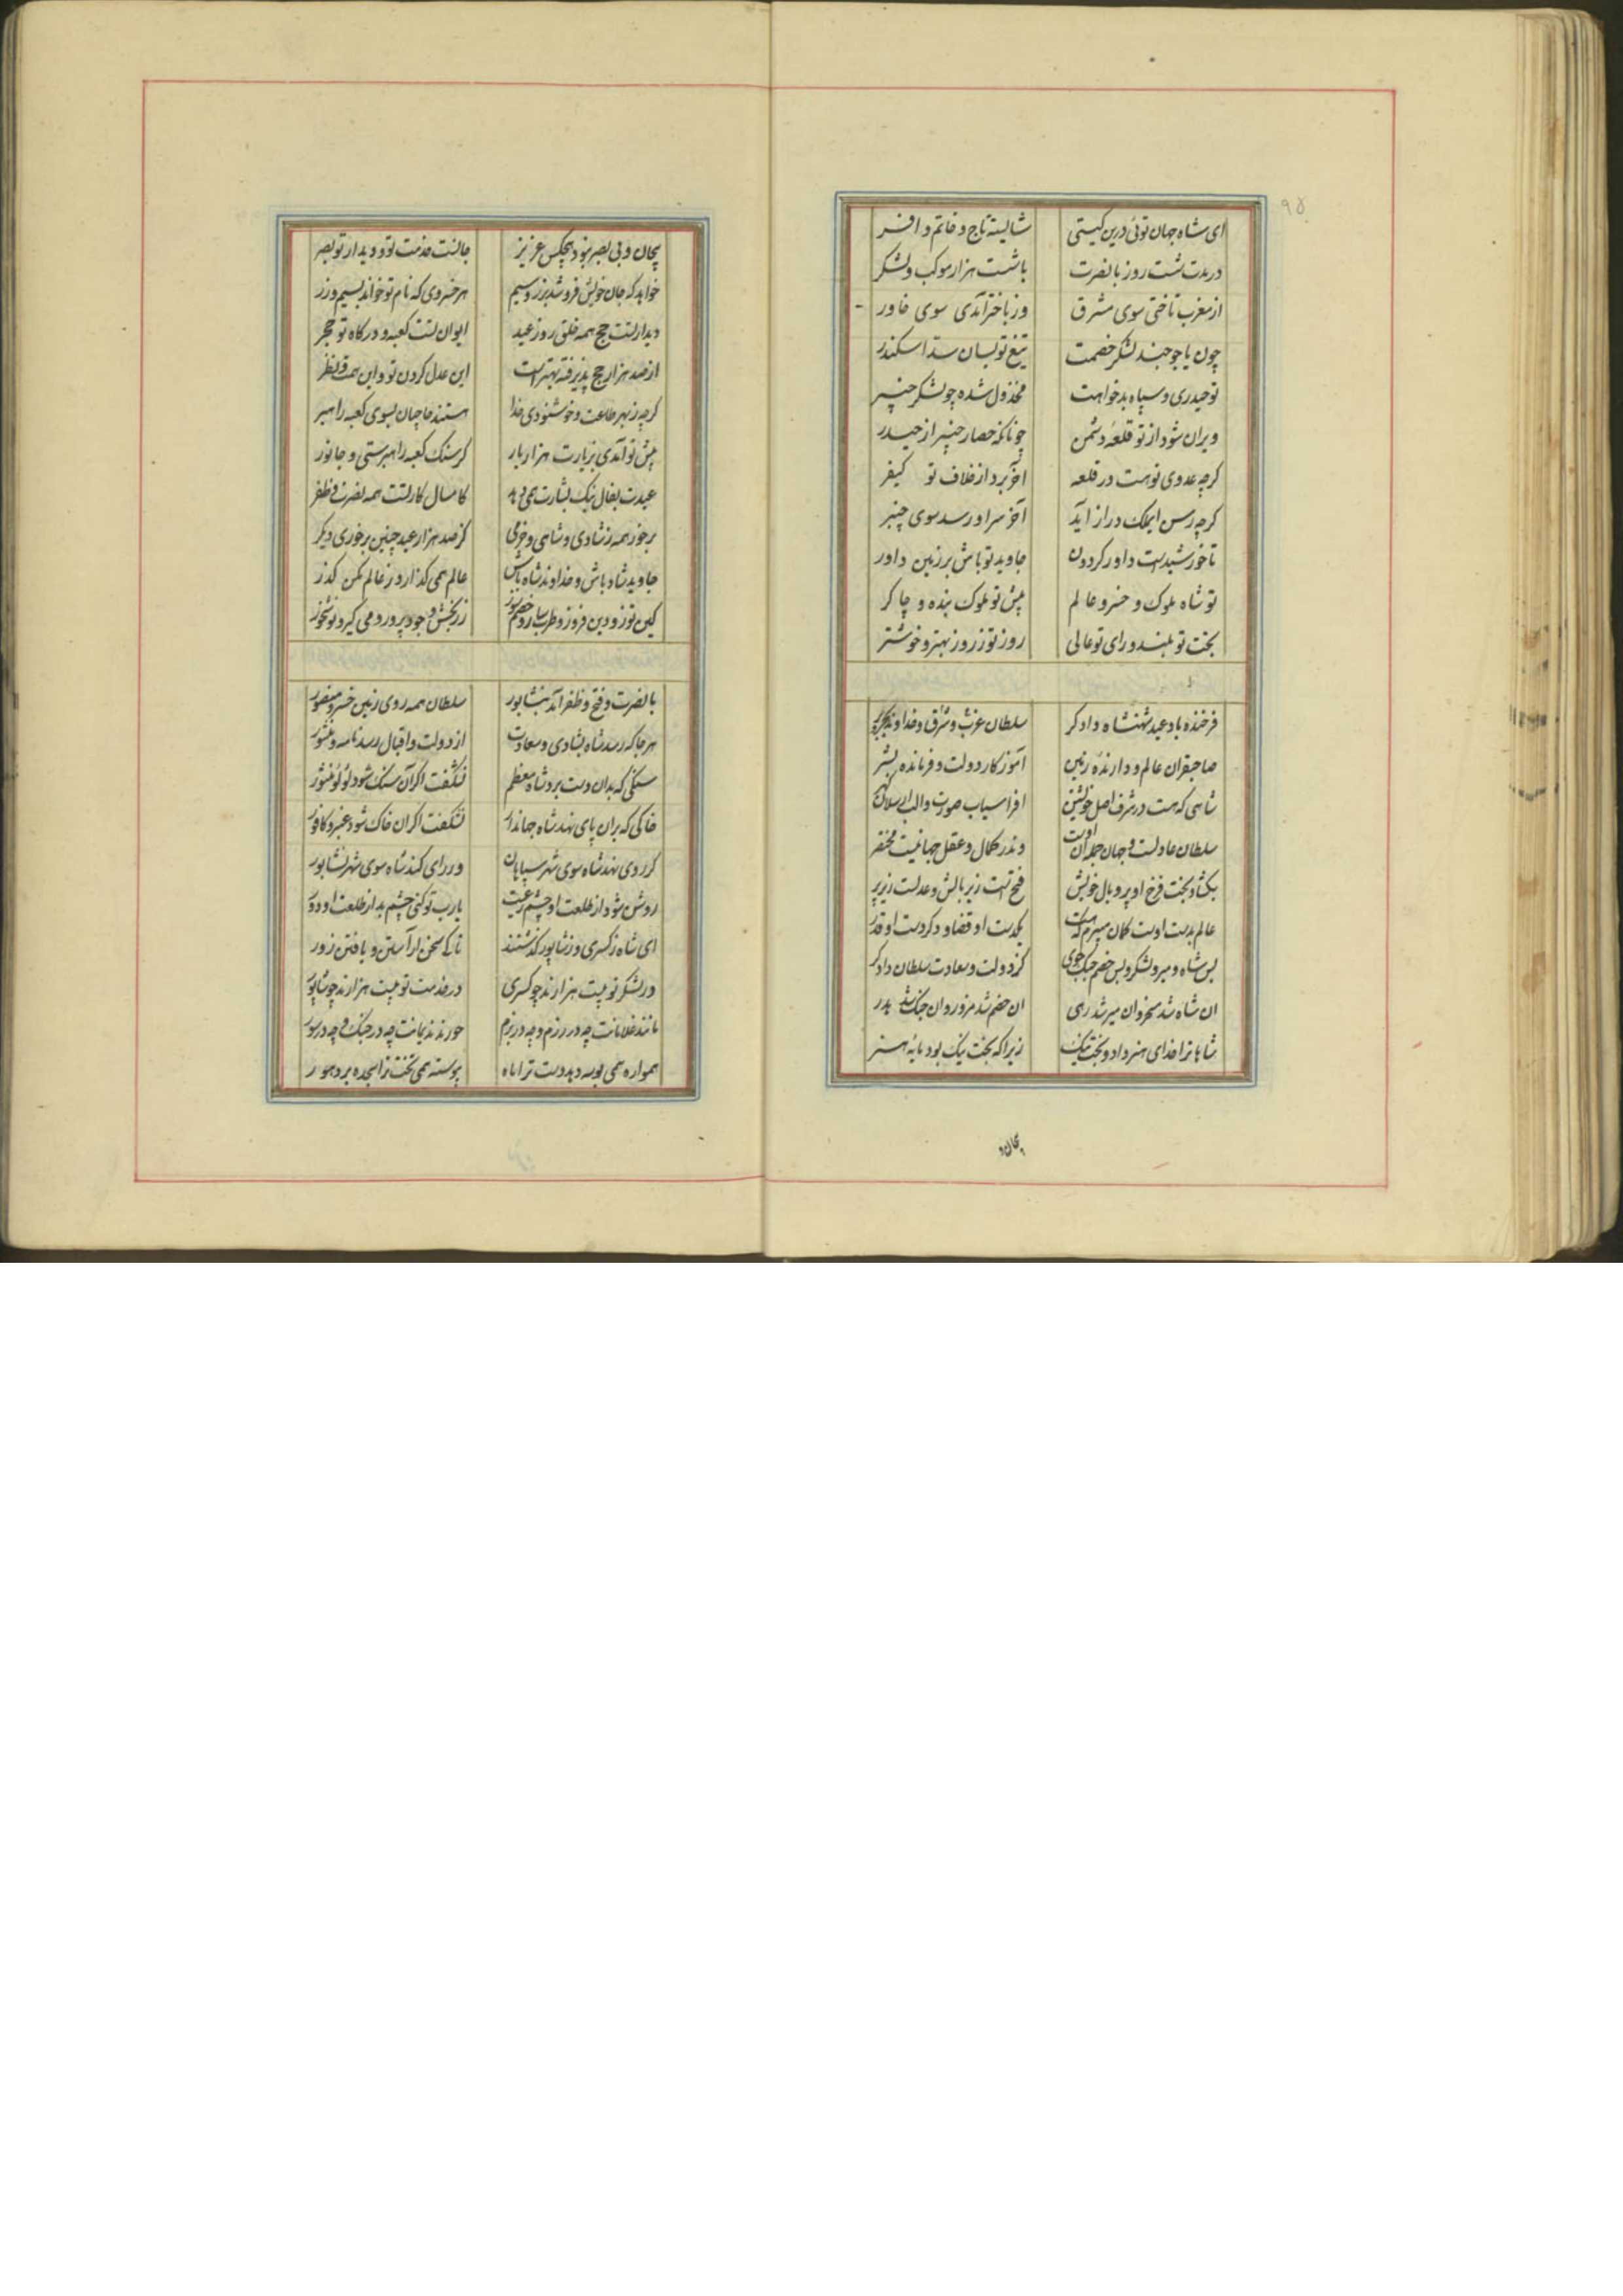 ۹۵
ای شاه جهان توئی درین کیتی شایسته تاج و خاتم و افسر
در مدت شست روز با نصرت با شست هزار موکب و لشکر
از مغرب تاختی سوی مشرق وز باختر آمدی سوی خاور
چون یاجوجند لشکر خصمت تیغ تو بسان سد اسکندر
تو حیدری و سپاه بدخواهت مخذول شده چو لشکر خیبر
ویران شود از تو قلعه دشمن چونانکه حصار خیبر از حیدر
کرچه عدوی تو هست در قلعه آخر برد از خلاف تو کیفر
کرچه رسن دراز آید آخر سر او رسد سوی چنبر
تا خورشیدست داور کردون جاوید تو باش بر زمین داور
تو شاه ملوک و خسرو عالم پیش تو ملوک بنده و چاکر
بخت تو بلند و رای تو عالی روز تو ز روز بهتر و خوشتر
فرخنده باد عید شهنشاه دادکر سلطان غرب و شرق و خداوند بحر و بر
صاحبقران عالم و دارنده زمین آموزکار دولت و فرمانده بشر
شاهی که هست در شرف اصل خویشتن افراسیاب صورت و الب ارسلان کهر
سلطان عادلست و جهان جمله آن اوست وندر کمال و عقل جهانیست مختصر
بکشاد بخت فرخ او پر و بال خویش فتح است زیر بالش و عدلست زیر پر
عالم بدست اوست کمان میبرم که هست یکدست او قضا و دکر دست او قدر
بس شاه و میر و لشکر و بس خصم جنک جوی کز دولت و سعادت سلطان دادکر
ان شاه شد مسخر وان میر شد رهی ان خصم شد مزور وان جنک شد هدر
شاها ترا خدای هنر داد و بخت نیک زیرا که بخت نیک بود مایه هنر
بیجان و
بیجان و بی بصر نبود هیچکس عزیز جانست خدمت تو و دیدار تو بصر
خواهد که جان خویش فروشد بزر و سیم هر خسروی که نام تو خواند بسیم و زر
دیدار تست حج همه خلق روز عید ایوان تست کعبه و درکاه تو حجر
از صد هزار حج پذیرفته بهتر است این عدل کردن تو و این همت و نظر
کرچه ز بهر طاعت و خوشنودی خدا هستند حاجیان بسوی کعبه راهبر
پیش تو آمدی بزیارت هزار بار کر سنک کعبه راهبرستی و جانور
عیدت بفال نیک بشارت همی دهد کامسال کار تست همه نصرت و ظفر
برخور همه ز شادی و شاهی و خرمی کز صد هزار عید چنین برخوری دکر
جاوید شاد باش و خداوند شاه باش عالم همی کذار و ز عالم مکن کذر
کین توز و دین فروز و طرب ساز و خصم سوز زر بخش و جود پرور و می کیر و نوش خور
با نصرت و فتح و ظفر آمد بنشابور سلطان همه روی زمین خسرو منصور
هرجا که رسد شاه بشادی و سعادت از دولت و اقبال رسد نامه و منشور
سنکی که بدان دست برد شاه معظم نشکفت اکر آن سنک شود لؤلؤ منثور
خاکی که بران پای نهد شاه جهاندار نشکفت اکر ان خاک شود عنبر و کافور
کر روی نهد شاه سوی شهر سپاهان ور رای کند شاه سوی شهر نشابور
روشن شود از طلعت او چشم رعیت یارب تو کنی چشم بد از طلعت او دور
ای شاه ز کسری و ز شاپور کذشتند تا کی سخن اراستن و بافتن زور
در لشکر تو بیست هزارند چو کسری در خدمت تو بیست هزارند چو شاپور
مانند غلامانت چه در رزم و چه در بزم خورند ندیمانت چه در جنک و چه در سور
همواره همی بوسه دهد دست ترا ماه پیوسته همی تخت ترا سجده برد هور